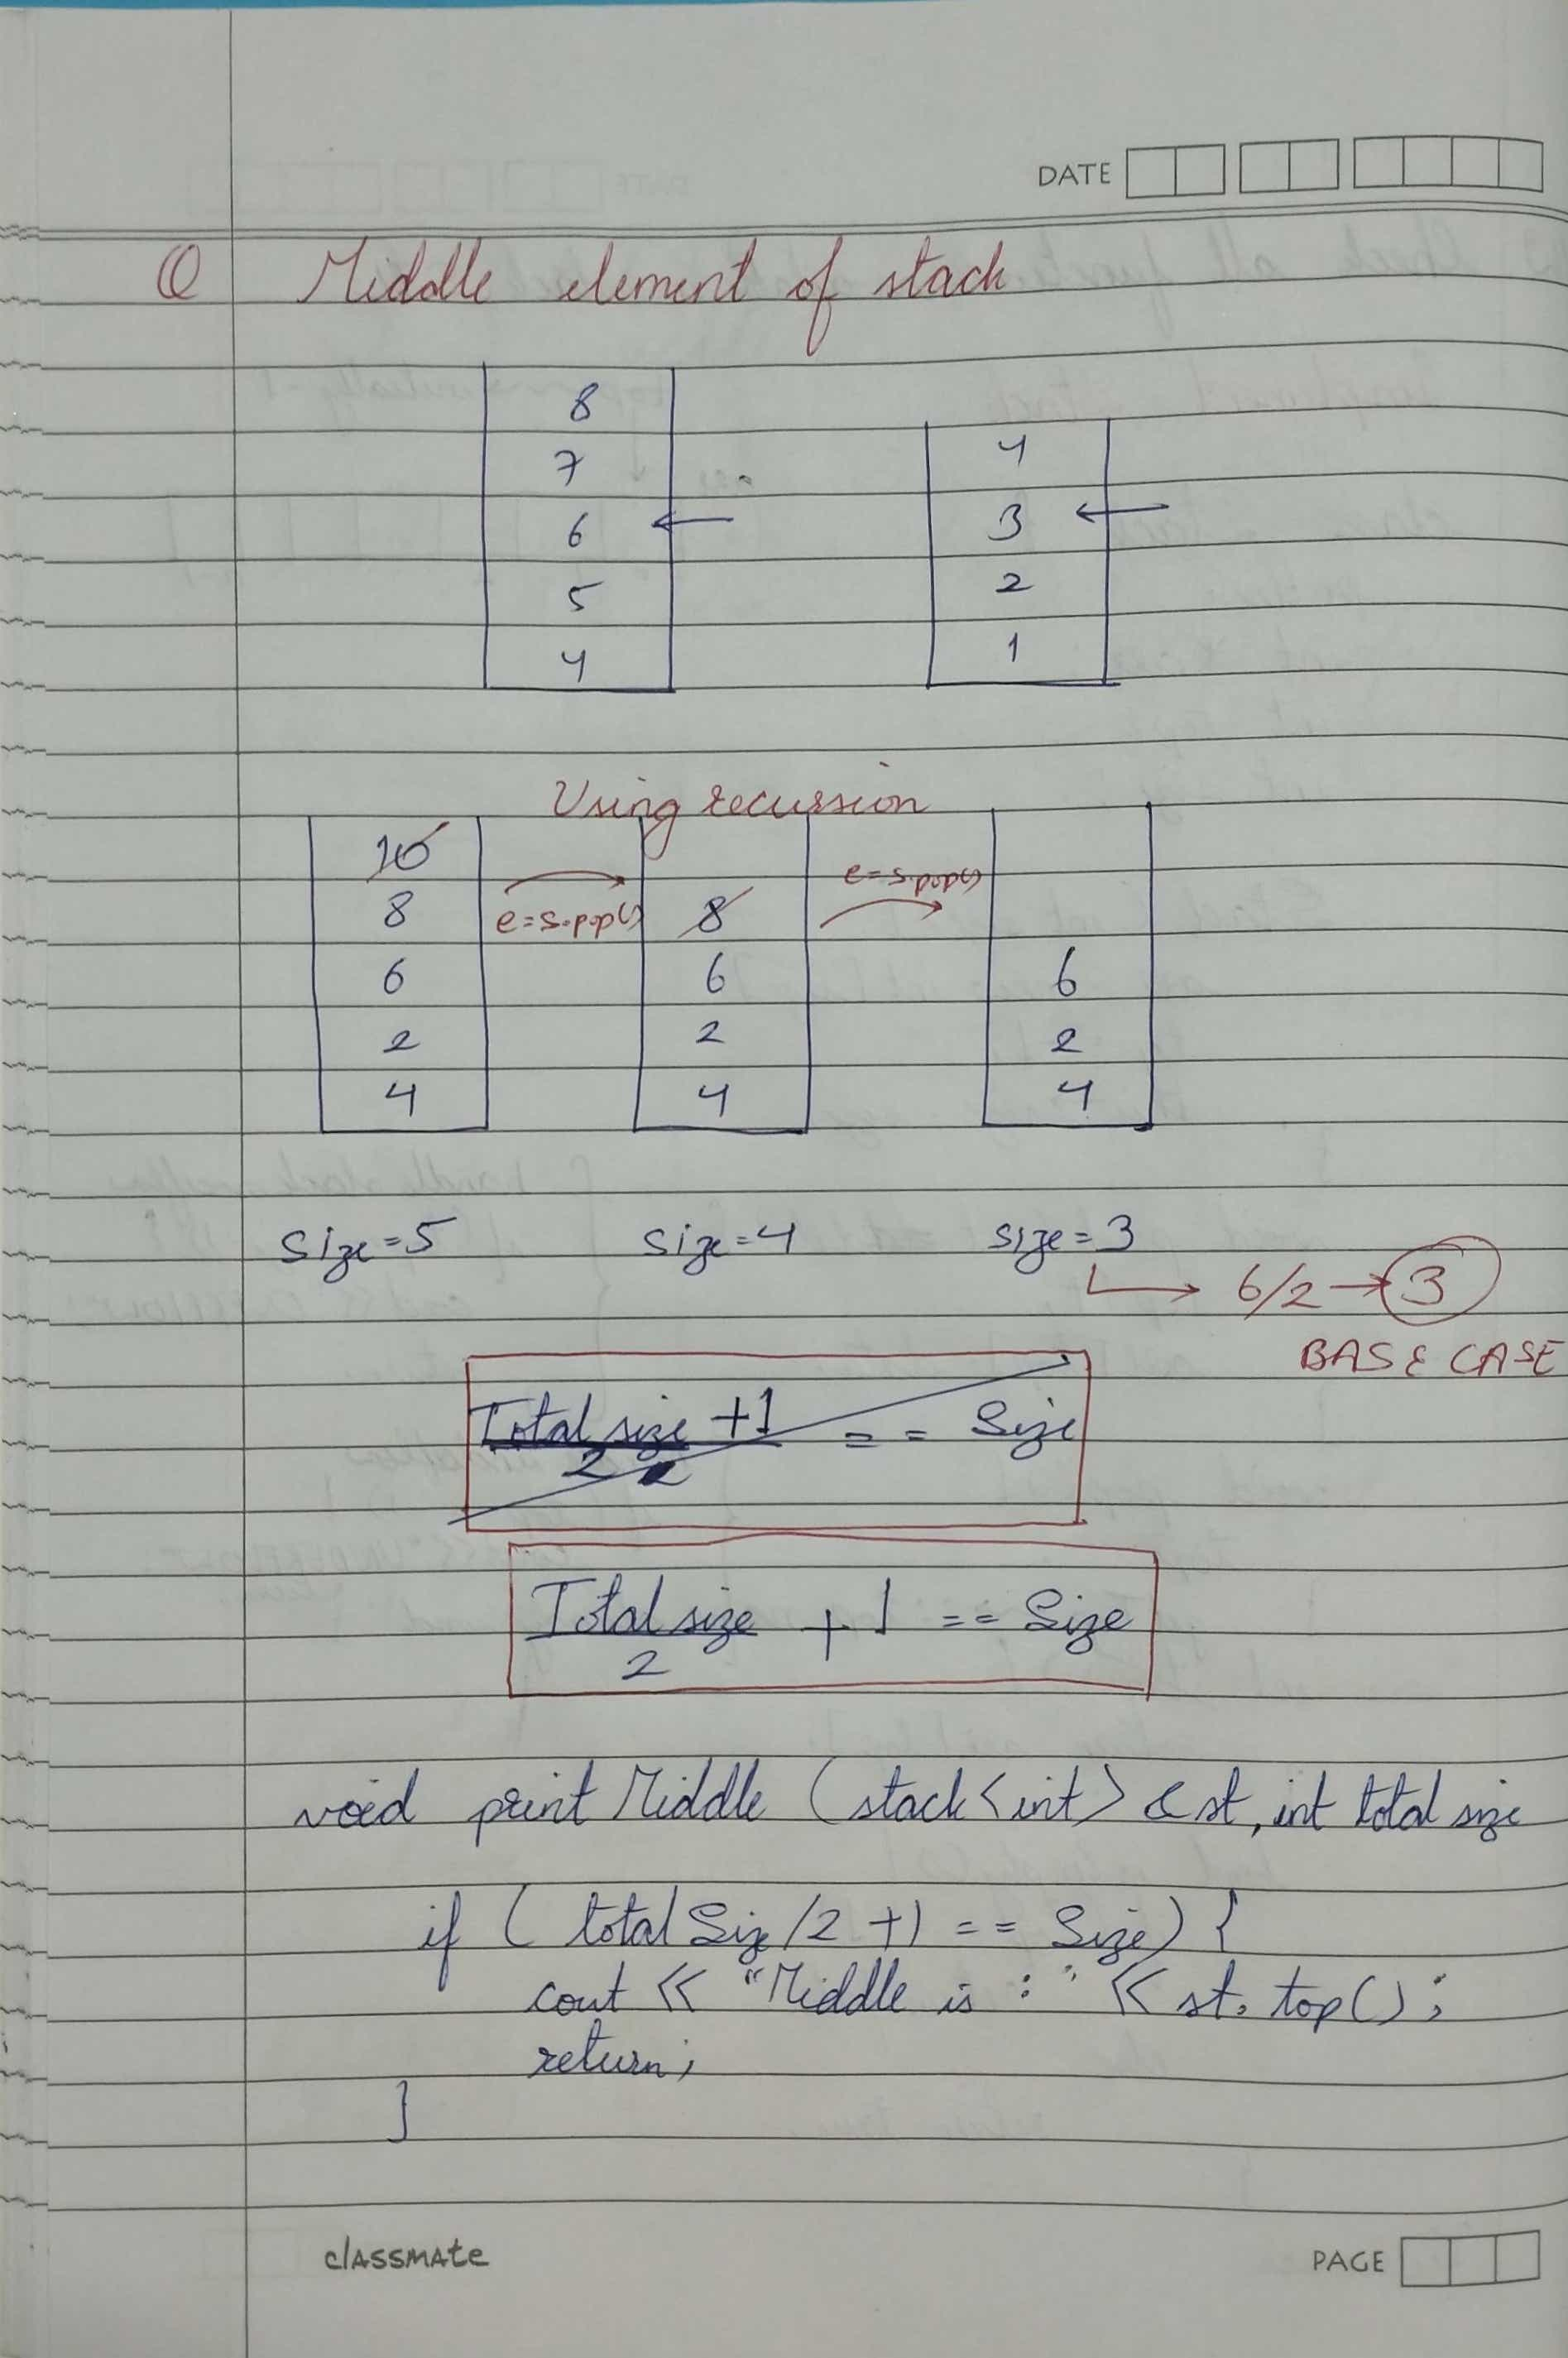 DATE
Q Middle element of stack
8
7
6 ←
5
4
4
3 ←
2
1
Using recursion
10
8
6
2
4
e=s.pop()
8
6
2
4
e=s.pop()
6
2
4
Size=5 Size=4 Size=3
6/2 → 3
BASE CASE
Total size +1 == Size
2
Total size + 1 == Size
2
void print Middle (stack<int> &st, int total size
if ( total Siz/2 +1 == Size) {
cout << "Middle is : " << st. top();
return;
}
classmate
PAGE